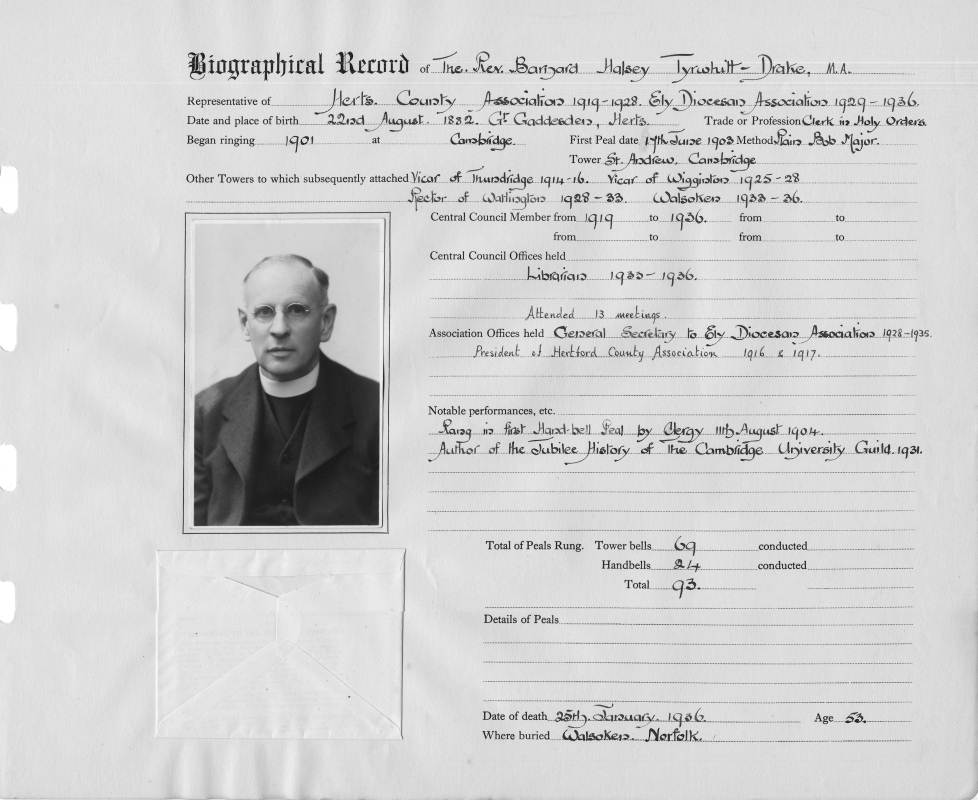 Biographical Record of The. Rev. Barnard Halsey Tyrwhitt-Drake, M.A.
Representative of Herts. County Association 1919-1928. Ely Diocesan Association 1929-1936.
Date and place of birth 22nd August. 1882. Gt Gaddesden, Herts. Trade or Profession Clerk in Holy Orders.
Began ringing 1901 at Cambridge. First Peal date 17th June 1903 Method Plain Bob Major.
Tower St. Andrew, Cambridge
Other Towers to which subsequently attached Vicar of Thundridge 1914-16. Vicar of Wigginton 1925-28
Rector of Watlington 1928-33. Walsoken 1933-36.
Central Council Member from 1919 to 1936. from to
from to from to
Central Council Offices held
Librarian 1933-1936.
Attended 13 meetings.
Association Offices held General Secretary to Ely Diocesan Association 1928-1935.
President of Hertford County Association 1916 & 1917.
Notable performances, etc.
Rang in first Hand-bell Peal by Clergy 11th August 1904.
Author of the Jubilee History of The Cambridge University Guild. 1931.
Total of Peals Rung. Tower bells 69 conducted
Handbells 24 conducted
Total 93.
Details of Peals
Date of death 25th. January. 1936. Age 53.
Where buried Walsoken. Norfolk.